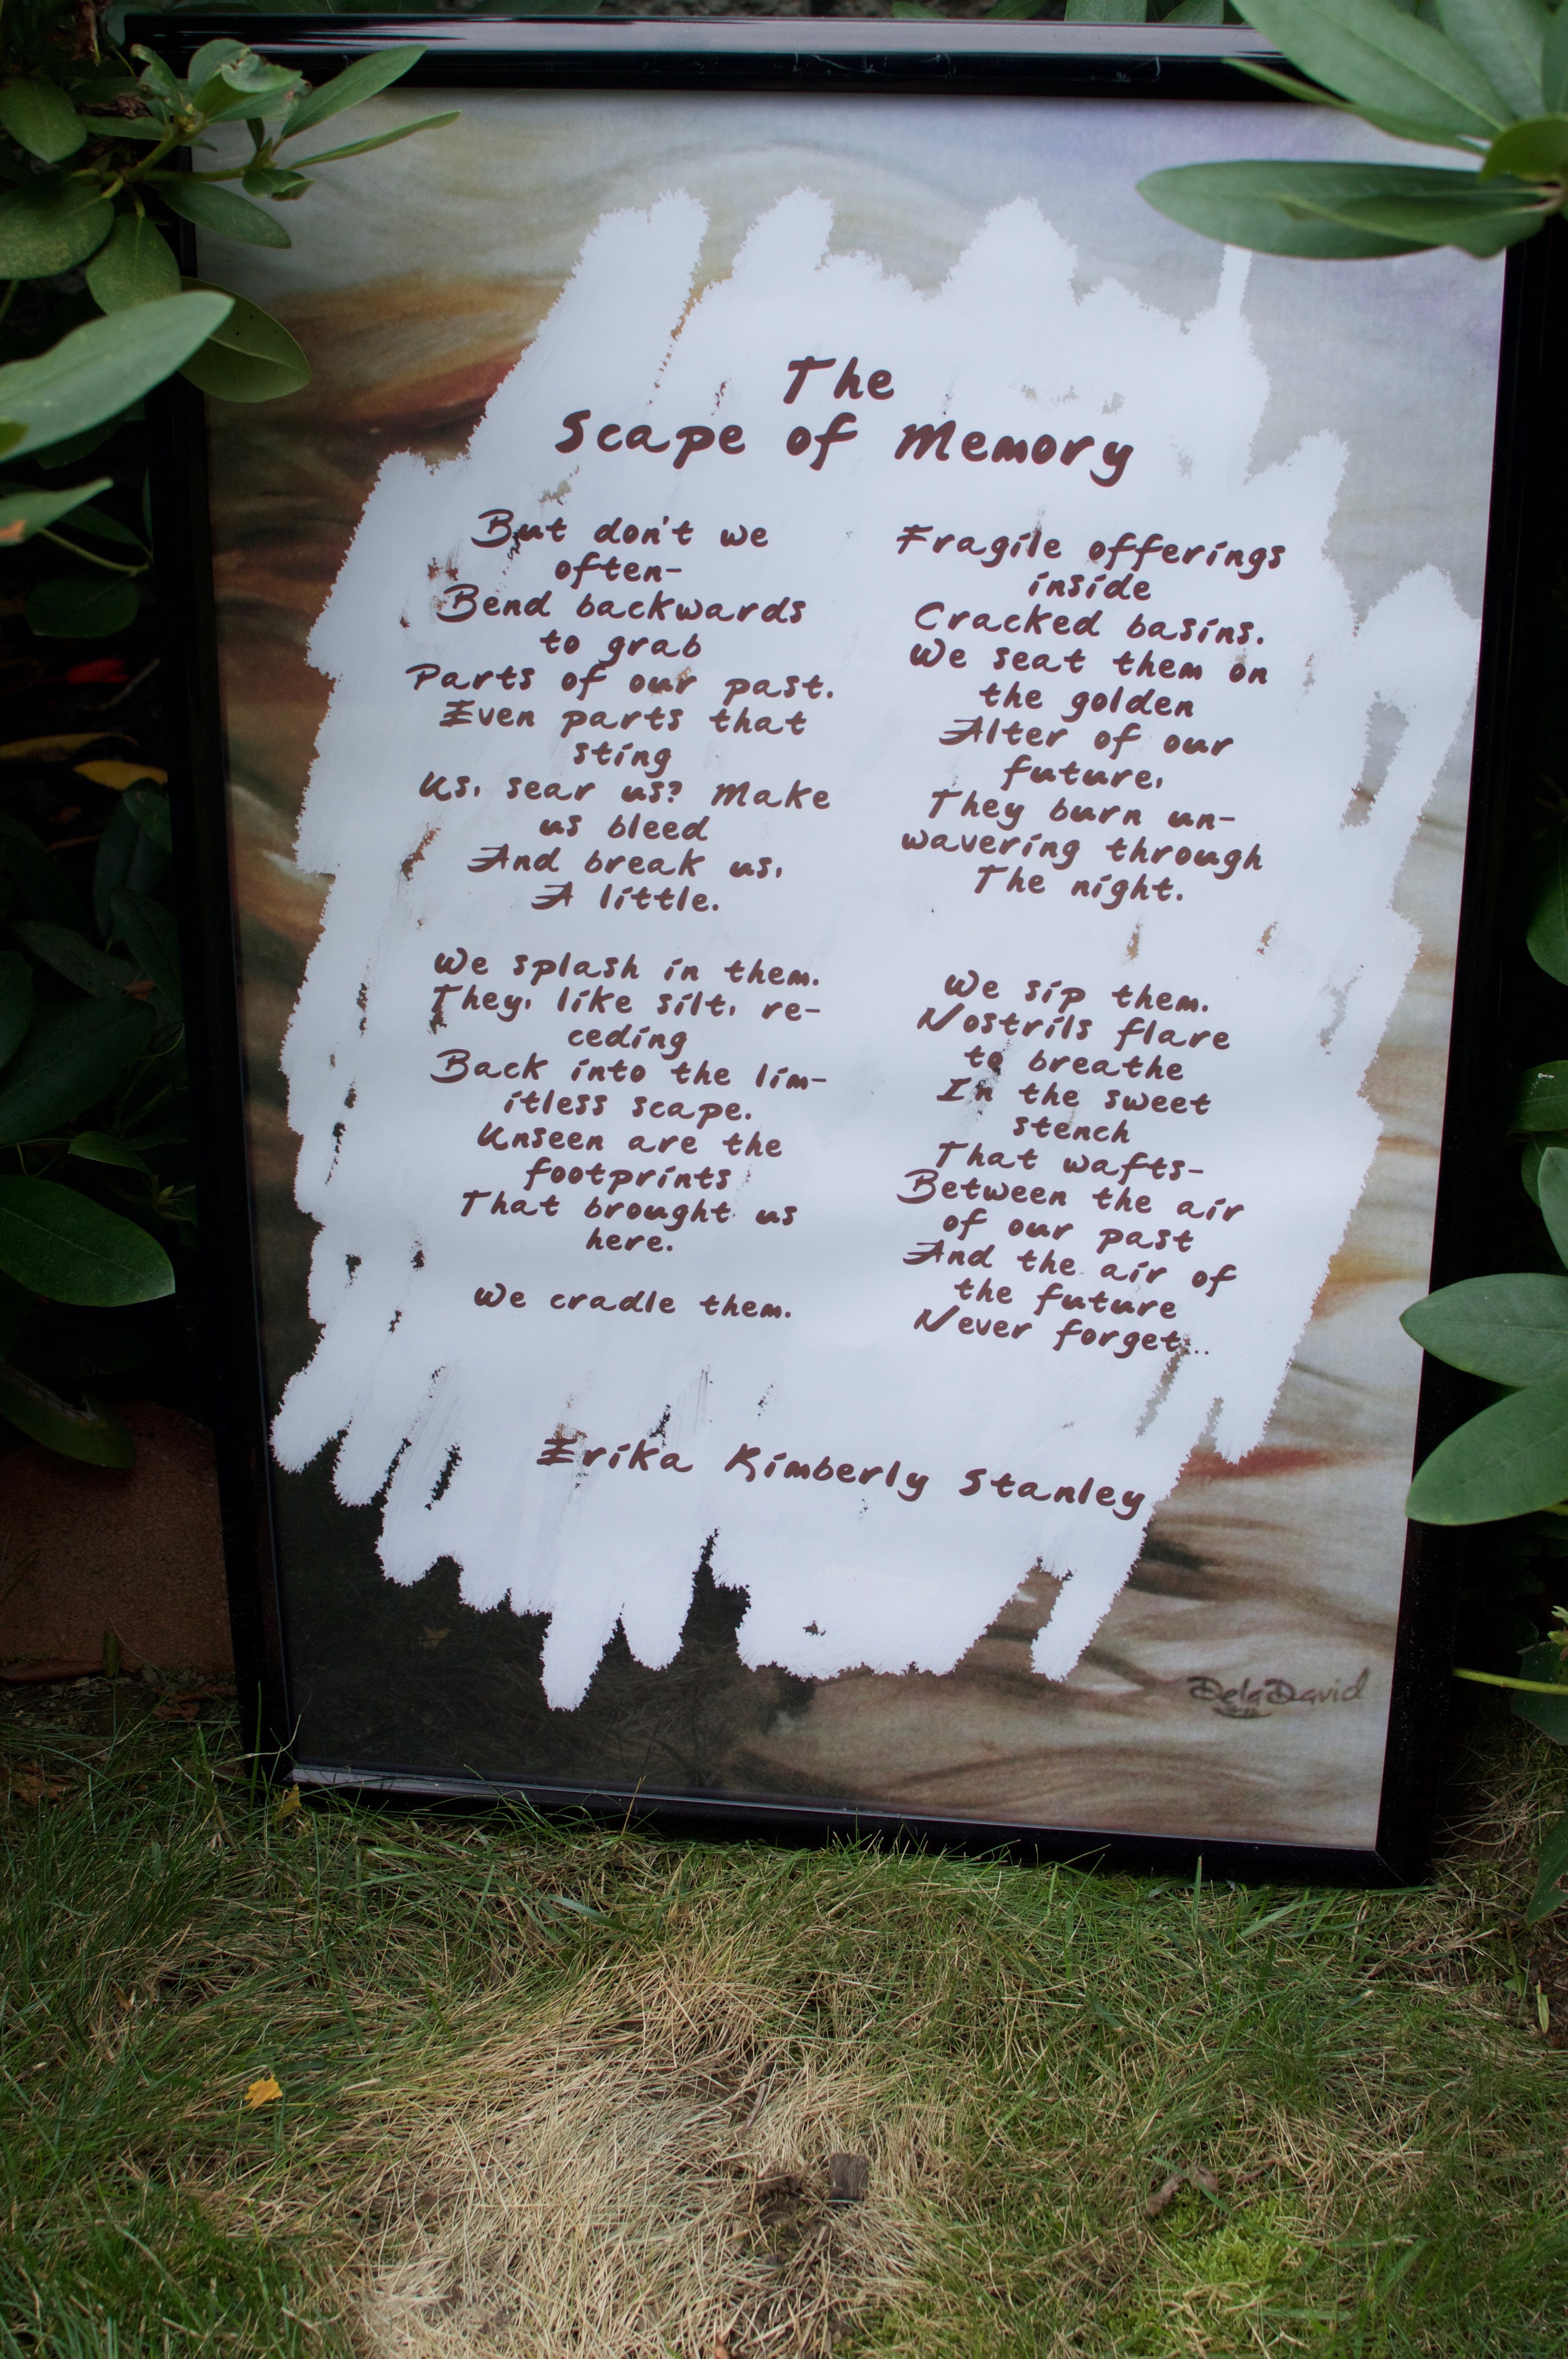 The
Scape of Memory
But don't we
often-
Bend backwards
to grab
Parts of our past.
Even parts that
sting
Us, sear us? Make
us bleed
And break us,
A little.
We splash in them.
They, like silt, re-
ceding
Back into the lim-
itless scape.
Unseen are the
footprints
That brought us
here.
We cradle them.
Fragile offerings
inside
Cracked basins.
We seat them on
the golden
Alter of our
future,
They burn un-
wavering through
The night.
We sip them.
Nostrils flare
to breathe
In the sweet
stench
That wafts-
Between the air
of our past
And the air of
the future
Never forget...
Erika Kimberly Stanley
David